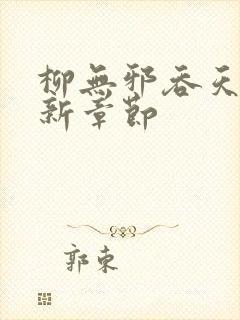 柳無邪吞天
新章節
郭東